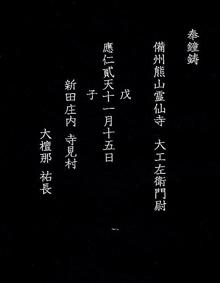 奉鐘鋳
備州熊山霊仙寺 大工左衛門尉
戊
應仁貳天十一月十五日
子
新田庄内 寺見村
大檀那 祐長